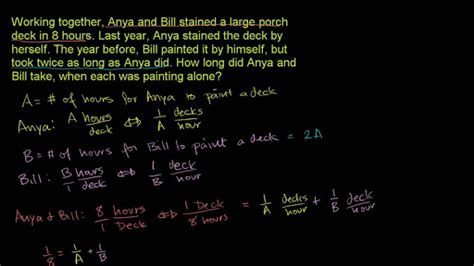 Working together, Anya and Bill stained a large porch
deck in 8 hours. Last year, Anya stained the deck by
herself. The year before, Bill painted it by himself, but
took twice as long as Anya did. How long did Anya and
Bill take, when each was painting alone?
A = # of hours for Anya to paint a deck
Anya: A hours/deck ⇔ 1/A decks/hour
B = # of hours for Bill to paint a deck = 2A
Bill: B/1 hours/deck ⇔ 1/B deck/hour
Anya & Bill: 8/1 hours/Deck ⇔ 1 Deck/8 hours = 1/A decks/hour + 1/B deck/hour
1/8 = 1/A + 1/B